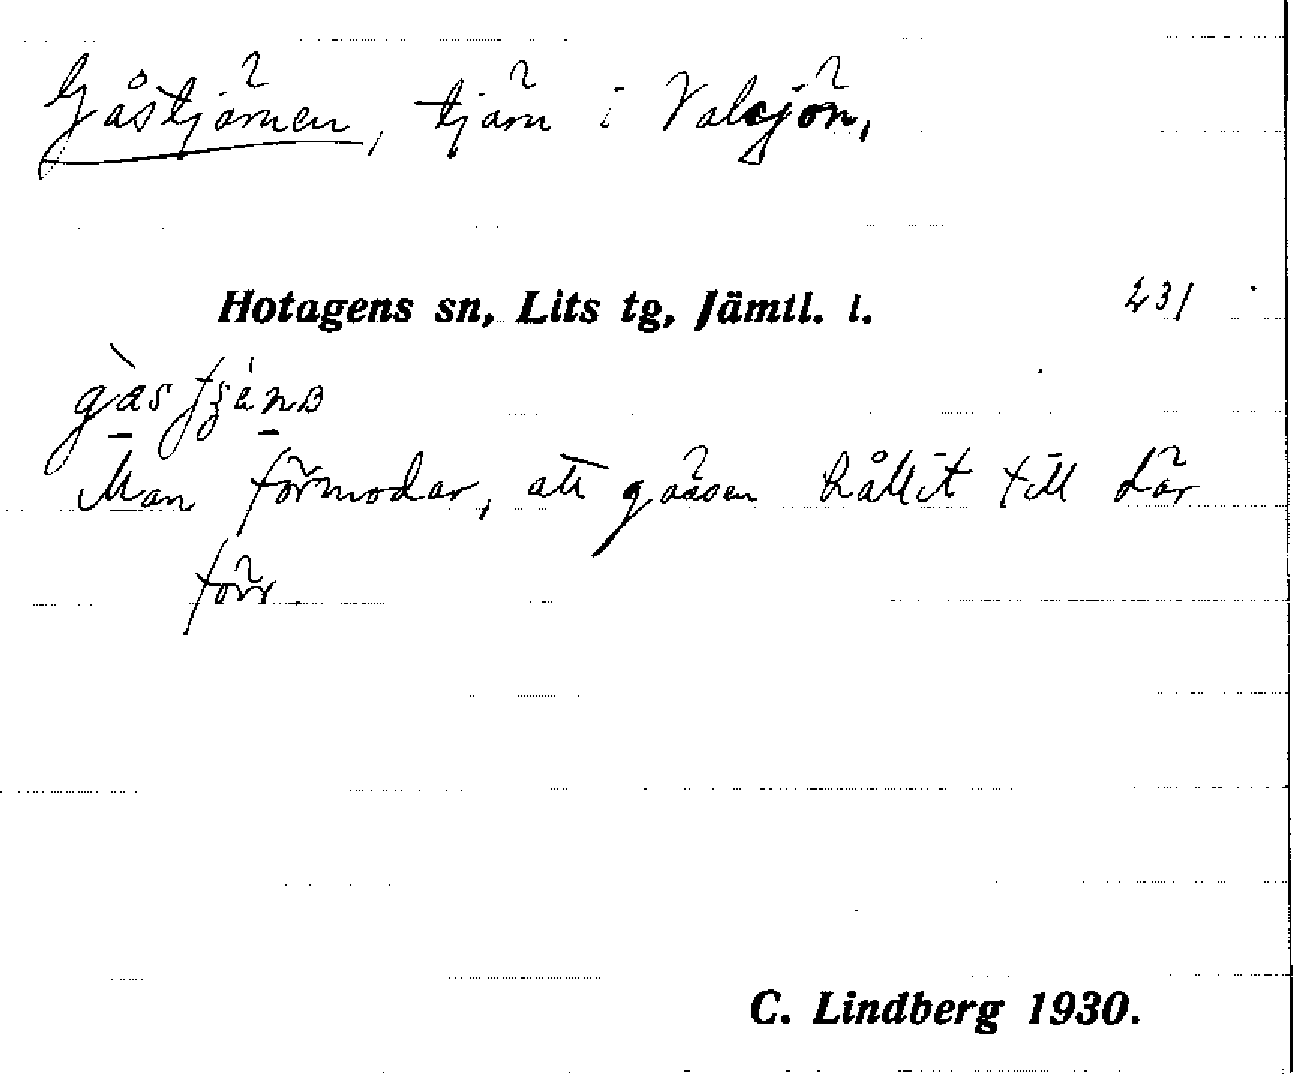 Gåstjärnen, tjärn i Valsjön,
Hotagens sn, Lits tg, Jämtl. l. 231
Man förmodar, att gässen hållit till där
förr.
C. Lindberg 1930.